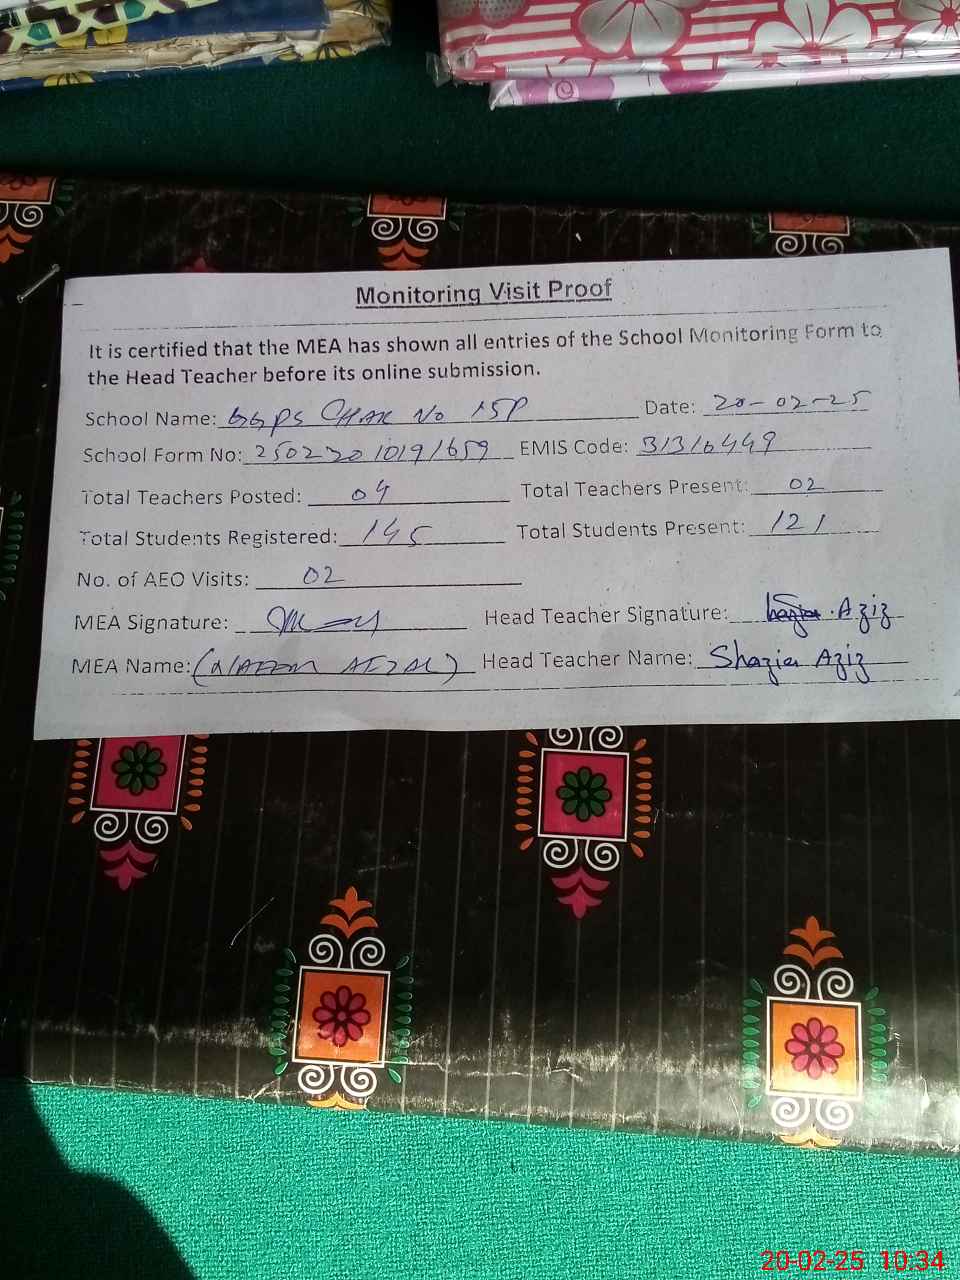 Monitoring Visit Proof
It is certified that the MEA has shown all entries of the School Monitoring Form to
the Head Teacher before its online submission.
School Name: GGPS CHAK No 15P Date: 20-02-25
School Form No: 25022010191659 EMIS Code: 31316449
Total Teachers Posted: 04 Total Teachers Present: 02
Total Students Registered: 145 Total Students Present: 121
No. of AEO Visits: 02
MEA Signature: Head Teacher Signature: Aziz
MEA Name: AFZAL) Head Teacher Name: Shazia Aziz
20-02-25 10:34